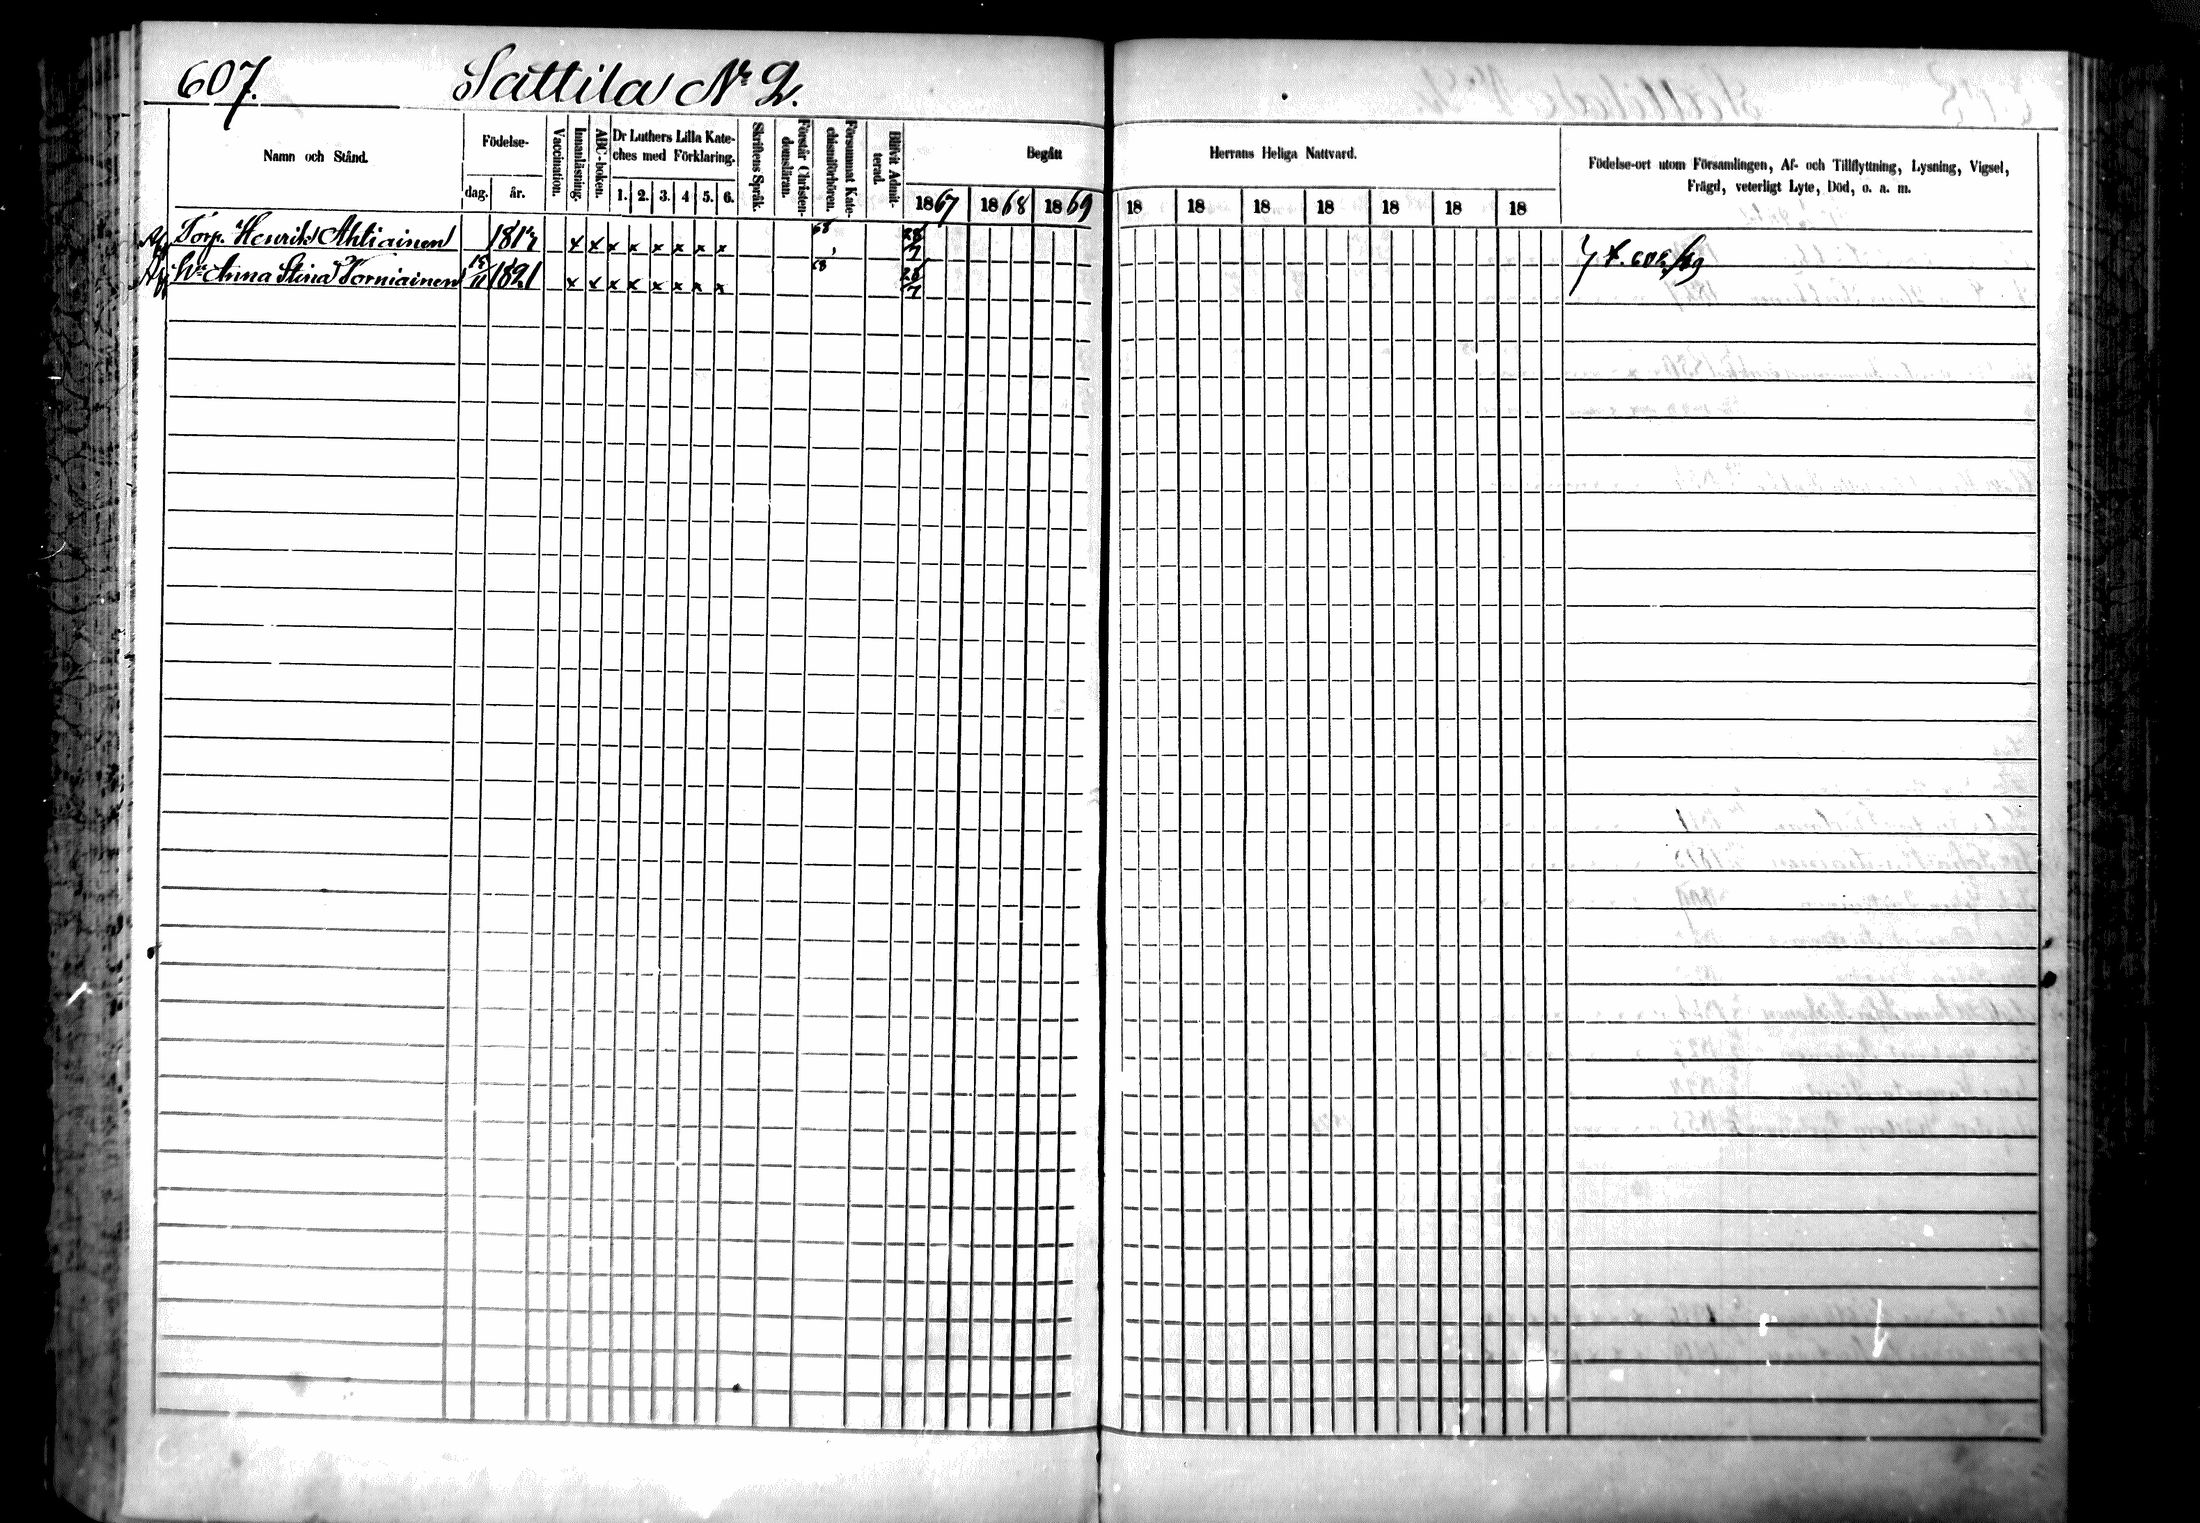 607. Sattila No 2.
Namn och Stånd.
Födelse-
dag. år.
Vaccination.
Innanläsning.
ABC-boken.
Dr Luthers Lilla Kate-
ches med Förklaring.
1. 2. 3. 4 5. 6.
Skriftens Språk.
Förstår Christen-
domsläran.
Försummat Kate-
chismiförhören.
Blifvit Admit-
terad.
Begått Herrans Heliga Nattvard.
1867 1868 1869 18 18 18 18 18 18 18
Födelse-ort utom Församlingen, Af- och Tillflyttning, Lysning, Vigsel,
Frägd, veterligt Lyte, Död, o. a. m.
Torp. Henrik Ahtiainen x x x x x x x x 68 28/7
Hu Anna Stina Torniainen 1821 x x x x x x x x 68 28/7